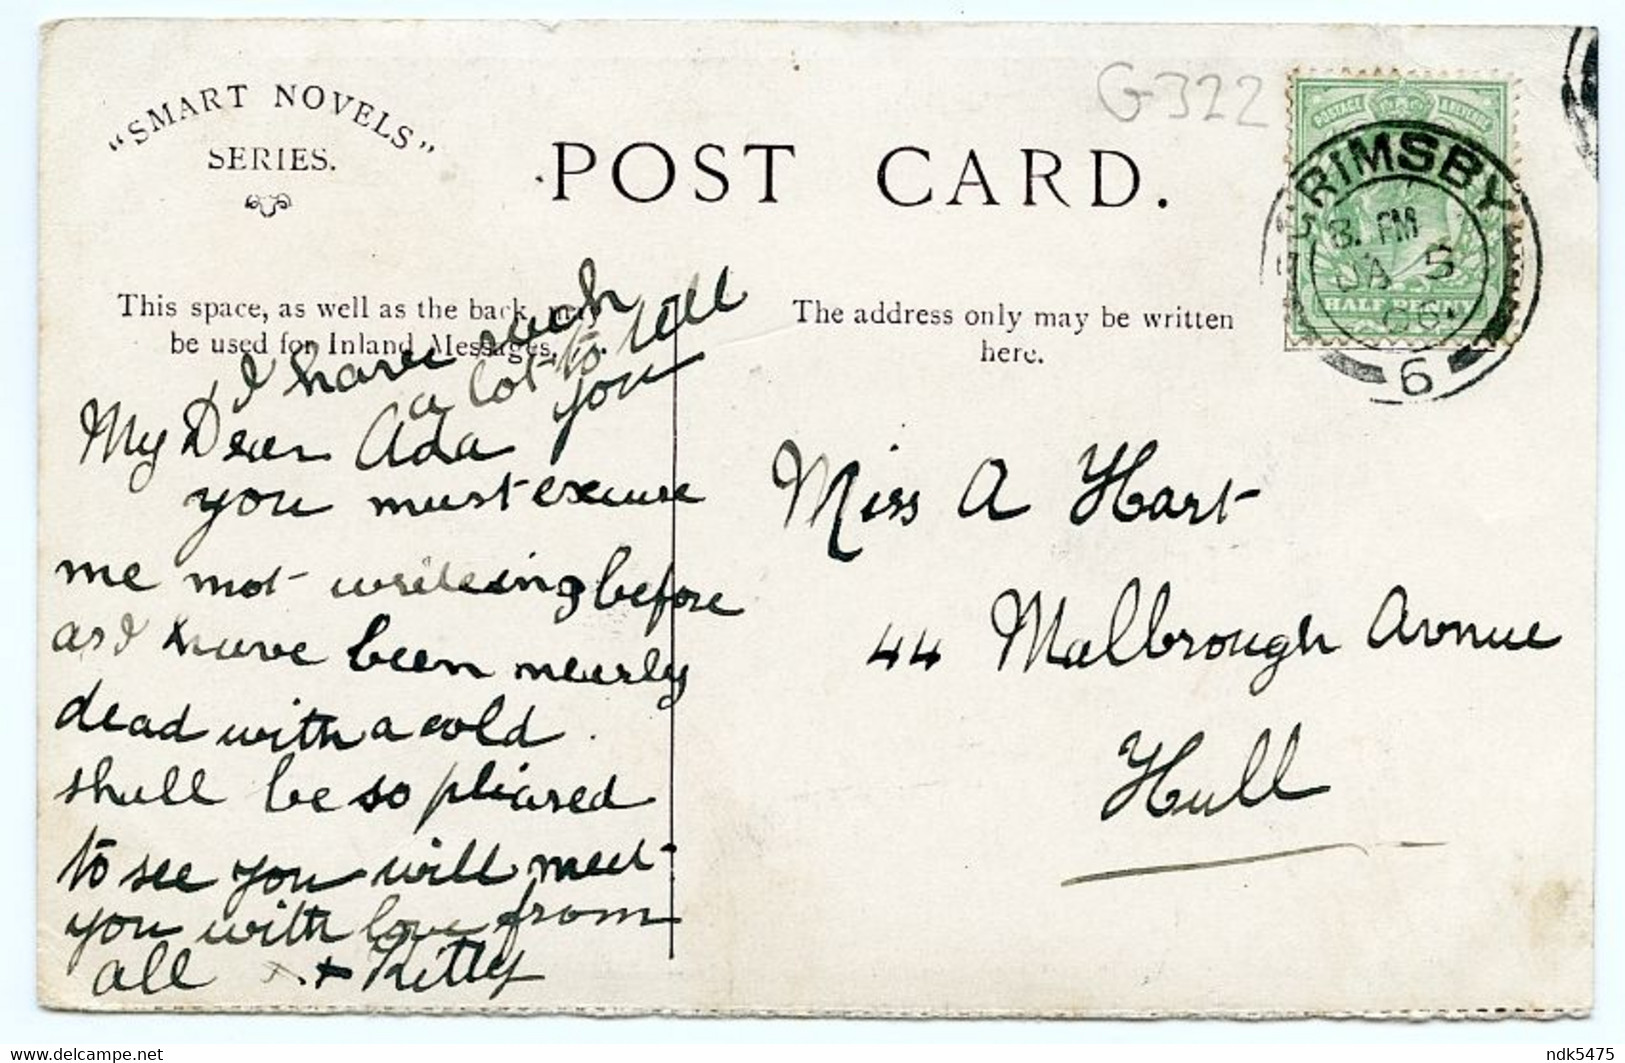 "SMART NOVELS"
SERIES.
POST CARD.
G322
POSTAGE REVENUE
GRIMSBY
8. PM
JA 5
06
HALF PENNY
6
This space, as well as the back, may
be used for Inland Messages.
The address only may be written
here.
I have such
a lot to tell
you
My Dear Ada
you must excuse
me not writeing before
as I have been nearly
dead with a cold.
shall be so pleased
to see you will meet
you with love from
all x + Kitty
Miss A Hart
44 Malbrough Avnue
Hull
ndk5475
delcampe.net